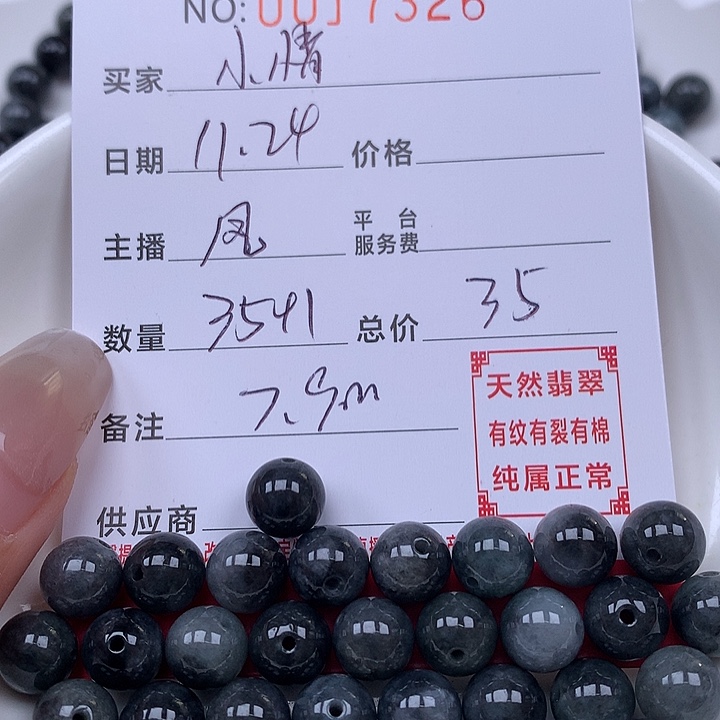 NO: 0017326
买家 小精
日期 11.24 价格
主播 凤 平台服务费
数量 3541 总价 35
备注 7.9m
天然翡翠
有纹有裂有棉
纯属正常
供应商